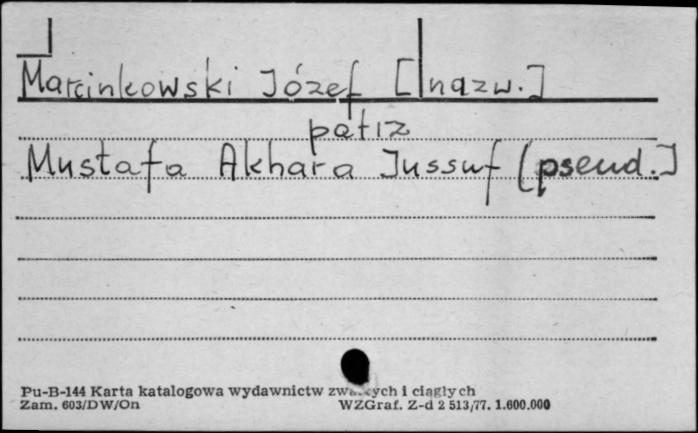 Marcinkowski Józef [nazw.]
patrz
Mustafa Akhara Jussuf (pseud.]
Pu-B-144 Karta katalogowa wydawnictw zwartych i ciągłych
Zam. 603/DW/On WZGraf. Z-d 2 513/77. 1.600.000